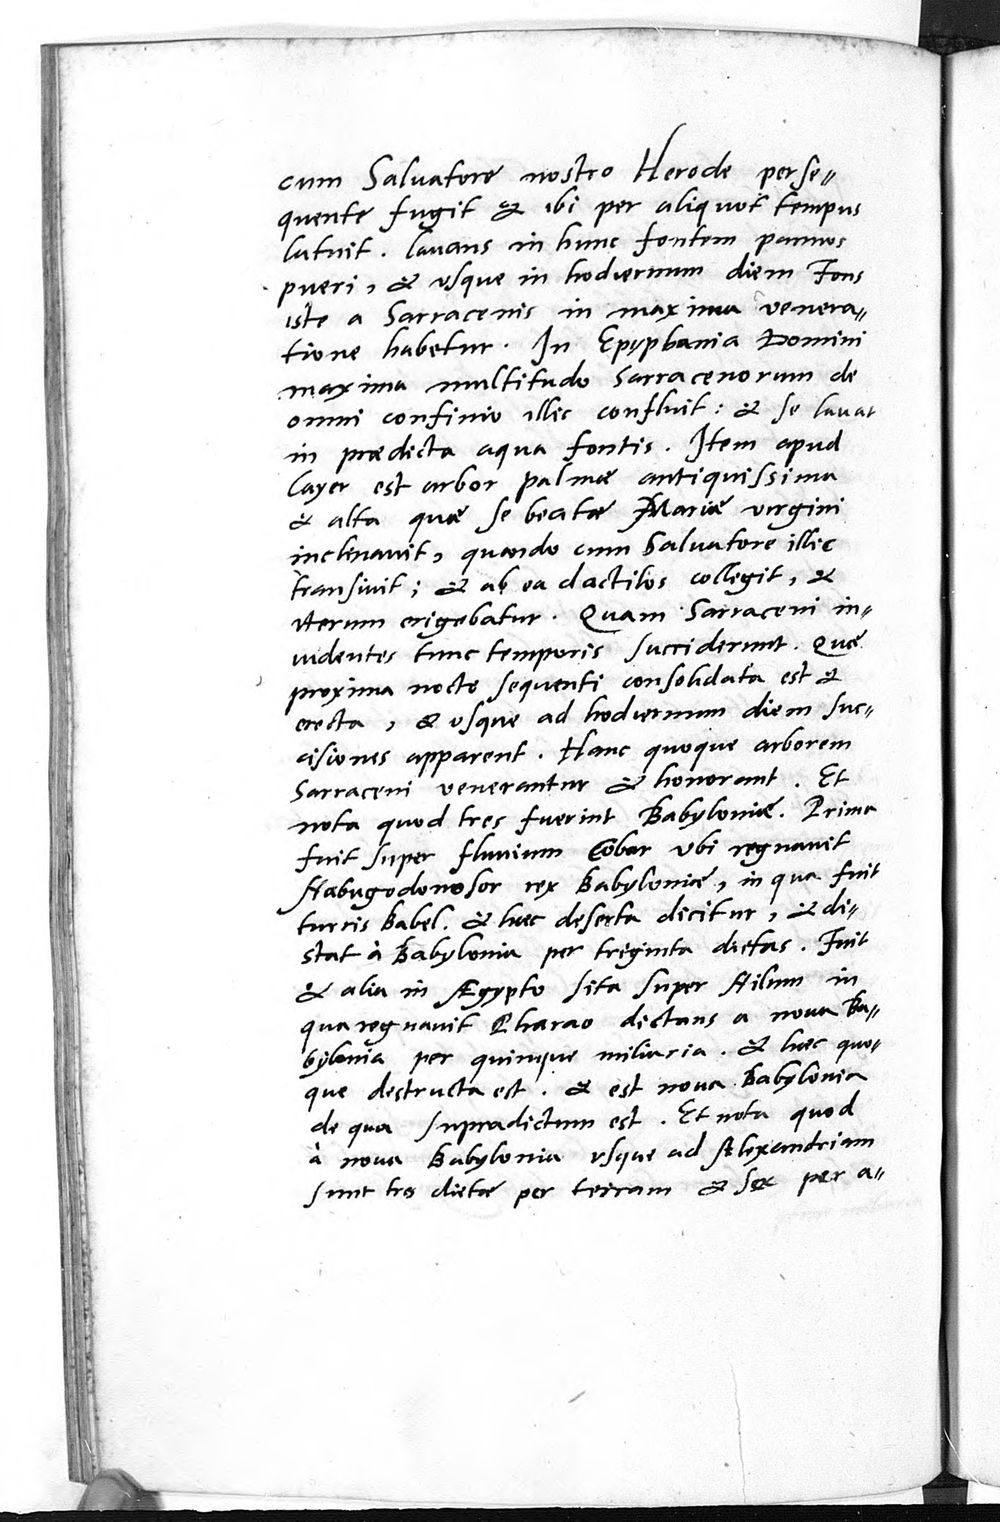 cum Salvatore nostro Herode perse=
quente fugit & ibi per aliquot tempus
latuit. lavans in hunc fontem pannos
pueri, & usque in hodiernum diem Fons
iste a Sarracenis in maxima venera=
tione habetur. In Epyphania Domini
maxima multitudo Sarracenorum de
omni confinio illic confluit: & se lavat
in prædicta aqua fontis. Item apud
Cayer est arbor palmæ antiquissima
& alta quæ se beatæ Mariæ virgini
inclinavit, quando cum Salvatore illic
transivit; & ab ea dactilos collegit, &
iterum erigebatur. Quam Sarraceni in=
uidentes tunc temporis succiderunt. Quæ
proxima nocte sequenti consolidata est &
erecta, & usque ad hodiernum diem suc=
cisiones apparent. Hanc quoque arborem
Sarraceni venerantur & honorant. Et
nota quod tres fuerint Babyloniæ. Prima
fuit super fluvium Cobar ubi regnavit
Nabugodonosor rex Babyloniæ, in qua fuit
turris Babel. & hæc deserta dicitur, & di=
stat à Babylonia per triginta dietas. Fuit
& alia in Ægypto sita super Nilum in
qua regnavit Pharao dictans a nova Ba=
bylonia per quinque miliaria. & hæc quo=
que destructa est. & est nova Babylonia
de qua supradictum est. Et nota quod
à nova Babylonia usque ad Alexandriam
sunt tres dietæ per terram & sex per a=